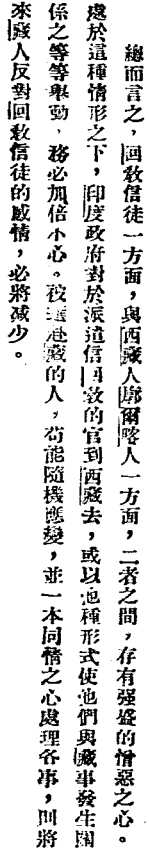 總而言之，回敎信徒一方面，與西藏人廓爾喀人一方面，二者之間，存有强盛的憎惡之心。
處於這種情形之下，印度政府對於派遣信回敎的官到西藏去，或以他種形式使他們與藏事發生關
係之等等舉動，務必加倍小心。被選赴藏的人，苟能隨機應變，並一本同情之心處理各事，則將
來藏人反對回敎信徒的感情，必將減少。